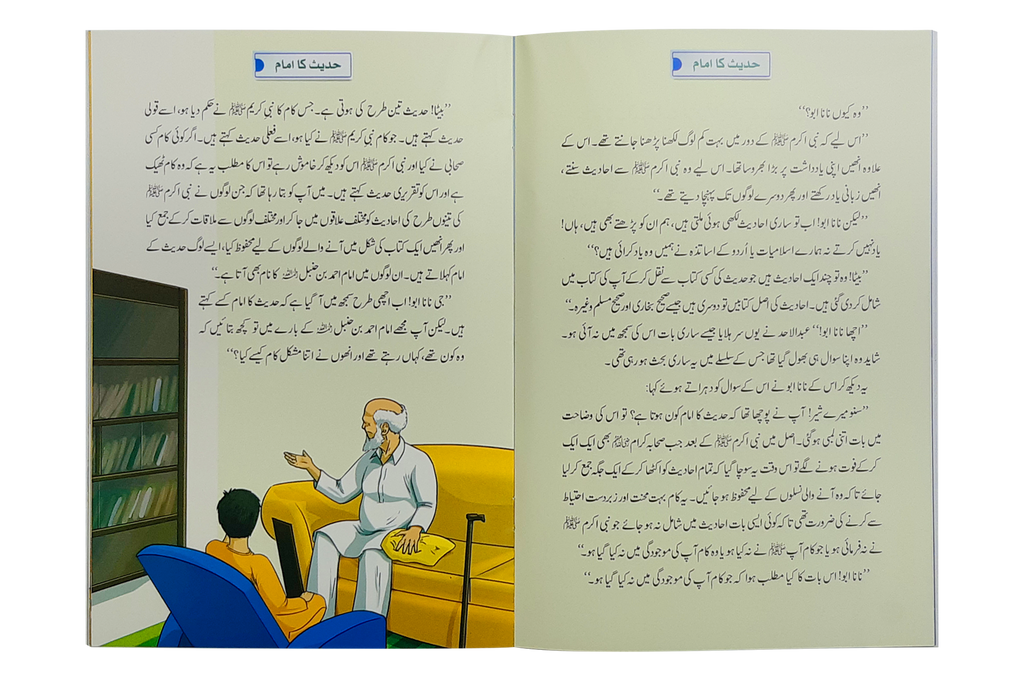 حدیث کا امام
’’وہ کیوں نانا ابو؟‘‘
’’اس لیے کہ نبی اکرم ﷺ کے دور میں بہت کم لوگ لکھنا پڑھنا جانتے تھے۔ اس کے
علاوہ انھیں اپنی یادداشت پر بڑا بھروسا تھا۔ اس لیے وہ نبی اکرم ﷺ سے احادیث سنتے،
انھیں زبانی یاد رکھتے اور پھر دوسرے لوگوں تک پہنچا دیتے تھے۔‘‘
’’لیکن نانا ابو! اب تو ساری احادیث لکھی ہوئی ملتی ہیں، ہم ان کو پڑھتے بھی ہیں، ہاں!
یاد نہیں کرتے نہ ہمارے اسلامیات یا اُردو کے اساتذہ نے ہمیں وہ یاد کرائی ہیں؟‘‘
’’بیٹا! وہ تو چند ایک احادیث ہیں جو حدیث کی کسی کتاب سے نقل کر کے آپ کی کتاب میں
شامل کر دی گئی ہیں۔ احادیث کی اصل کتابیں تو دوسری ہیں جیسے صحیح بخاری اور صحیح مسلم وغیرہ۔‘‘
’’اچھا نانا ابو!‘‘ عبدالاحد نے یوں سر ہلایا جیسے ساری بات اس کی سمجھ میں نہ آئی ہو۔
شاید وہ اپنا سوال ہی بھول گیا تھا جس کے سلسلے میں یہ ساری بحث ہو رہی تھی۔
یہ دیکھ کر اس کے نانا ابو نے اس کے سوال کو دہراتے ہوئے کہا:
’’سنو میرے شیر! آپ نے پوچھا تھا کہ حدیث کا امام کون ہوتا ہے؟ تو اس کی وضاحت
میں بات اتنی لمبی ہو گئی۔ اصل میں نبی اکرم ﷺ کے بعد جب صحابہ کرام بھی ایک ایک
کر کے فوت ہونے لگے تو اس وقت یہ سوچا گیا کہ تمام احادیث کو اکٹھا کر کے ایک جگہ جمع کر لیا
جائے تا کہ وہ آنے والی نسلوں کے لیے محفوظ ہو جائیں۔ یہ کام بہت محنت اور زبردست احتیاط
سے کرنے کی ضرورت تھی تا کہ کوئی ایسی بات احادیث میں شامل نہ ہو جائے جو نبی اکرم ﷺ
نے نہ فرمائی ہو یا جو کام آپ ﷺ نے نہ کیا ہو یا وہ کام آپ کی موجودگی میں نہ کیا گیا ہو۔‘‘
’’نانا ابو! اس بات کا کیا مطلب ہوا کہ جو کام آپ کی موجودگی میں نہ کیا گیا ہو۔‘‘
حدیث کا امام
’’بیٹا! حدیث تین طرح کی ہوتی ہے۔ جس کام کا نبی کریم ﷺ نے حکم دیا ہو، اسے قولی
حدیث کہتے ہیں۔ جو کام نبی کریم ﷺ نے کیا ہو، اسے فعلی حدیث کہتے ہیں۔ اگر کوئی کام کسی
صحابی نے کیا اور نبی اکرم ﷺ اس کو دیکھ کر خاموش رہے تو اس کا مطلب یہ ہے کہ وہ کام ٹھیک
ہے اور اس کو تقریری حدیث کہتے ہیں۔ میں آپ کو بتا رہا تھا کہ جن لوگوں نے نبی اکرم ﷺ
کی تینوں طرح کی احادیث کو مختلف علاقوں میں جا کر اور مختلف لوگوں سے ملاقات کر کے جمع کیا
اور پھر انھیں ایک کتاب کی شکل میں آنے والے لوگوں کے لیے محفوظ کیا، ایسے لوگ حدیث کے
امام کہلاتے ہیں۔ ان لوگوں میں امام احمد بن حنبل کا نام بھی آتا ہے۔‘‘
’’جی نانا ابو! اب اچھی طرح سمجھ میں آ گیا ہے کہ حدیث کا امام کسے کہتے
ہیں۔ لیکن آپ مجھے امام احمد بن حنبل کے بارے میں تو کچھ بتائیں کہ
وہ کون تھے، کہاں رہتے تھے اور انھوں نے اتنا مشکل کام کیسے کیا؟‘‘